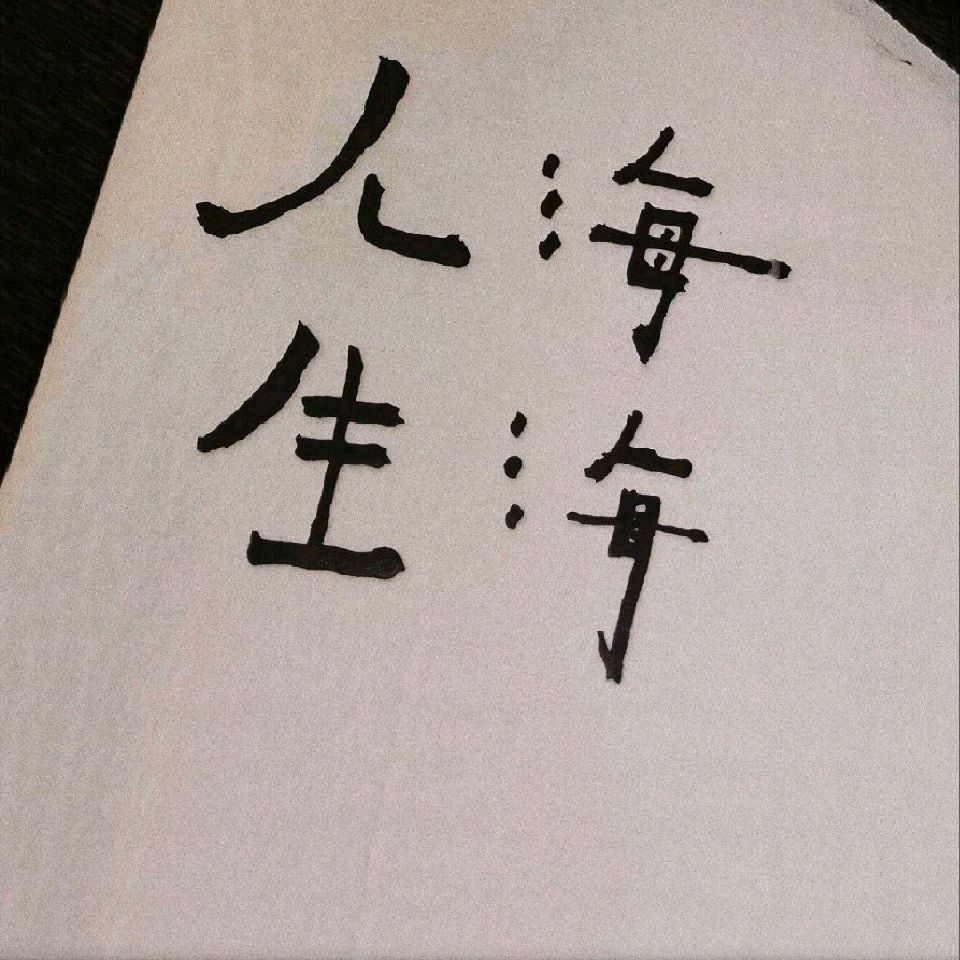 海海
人生